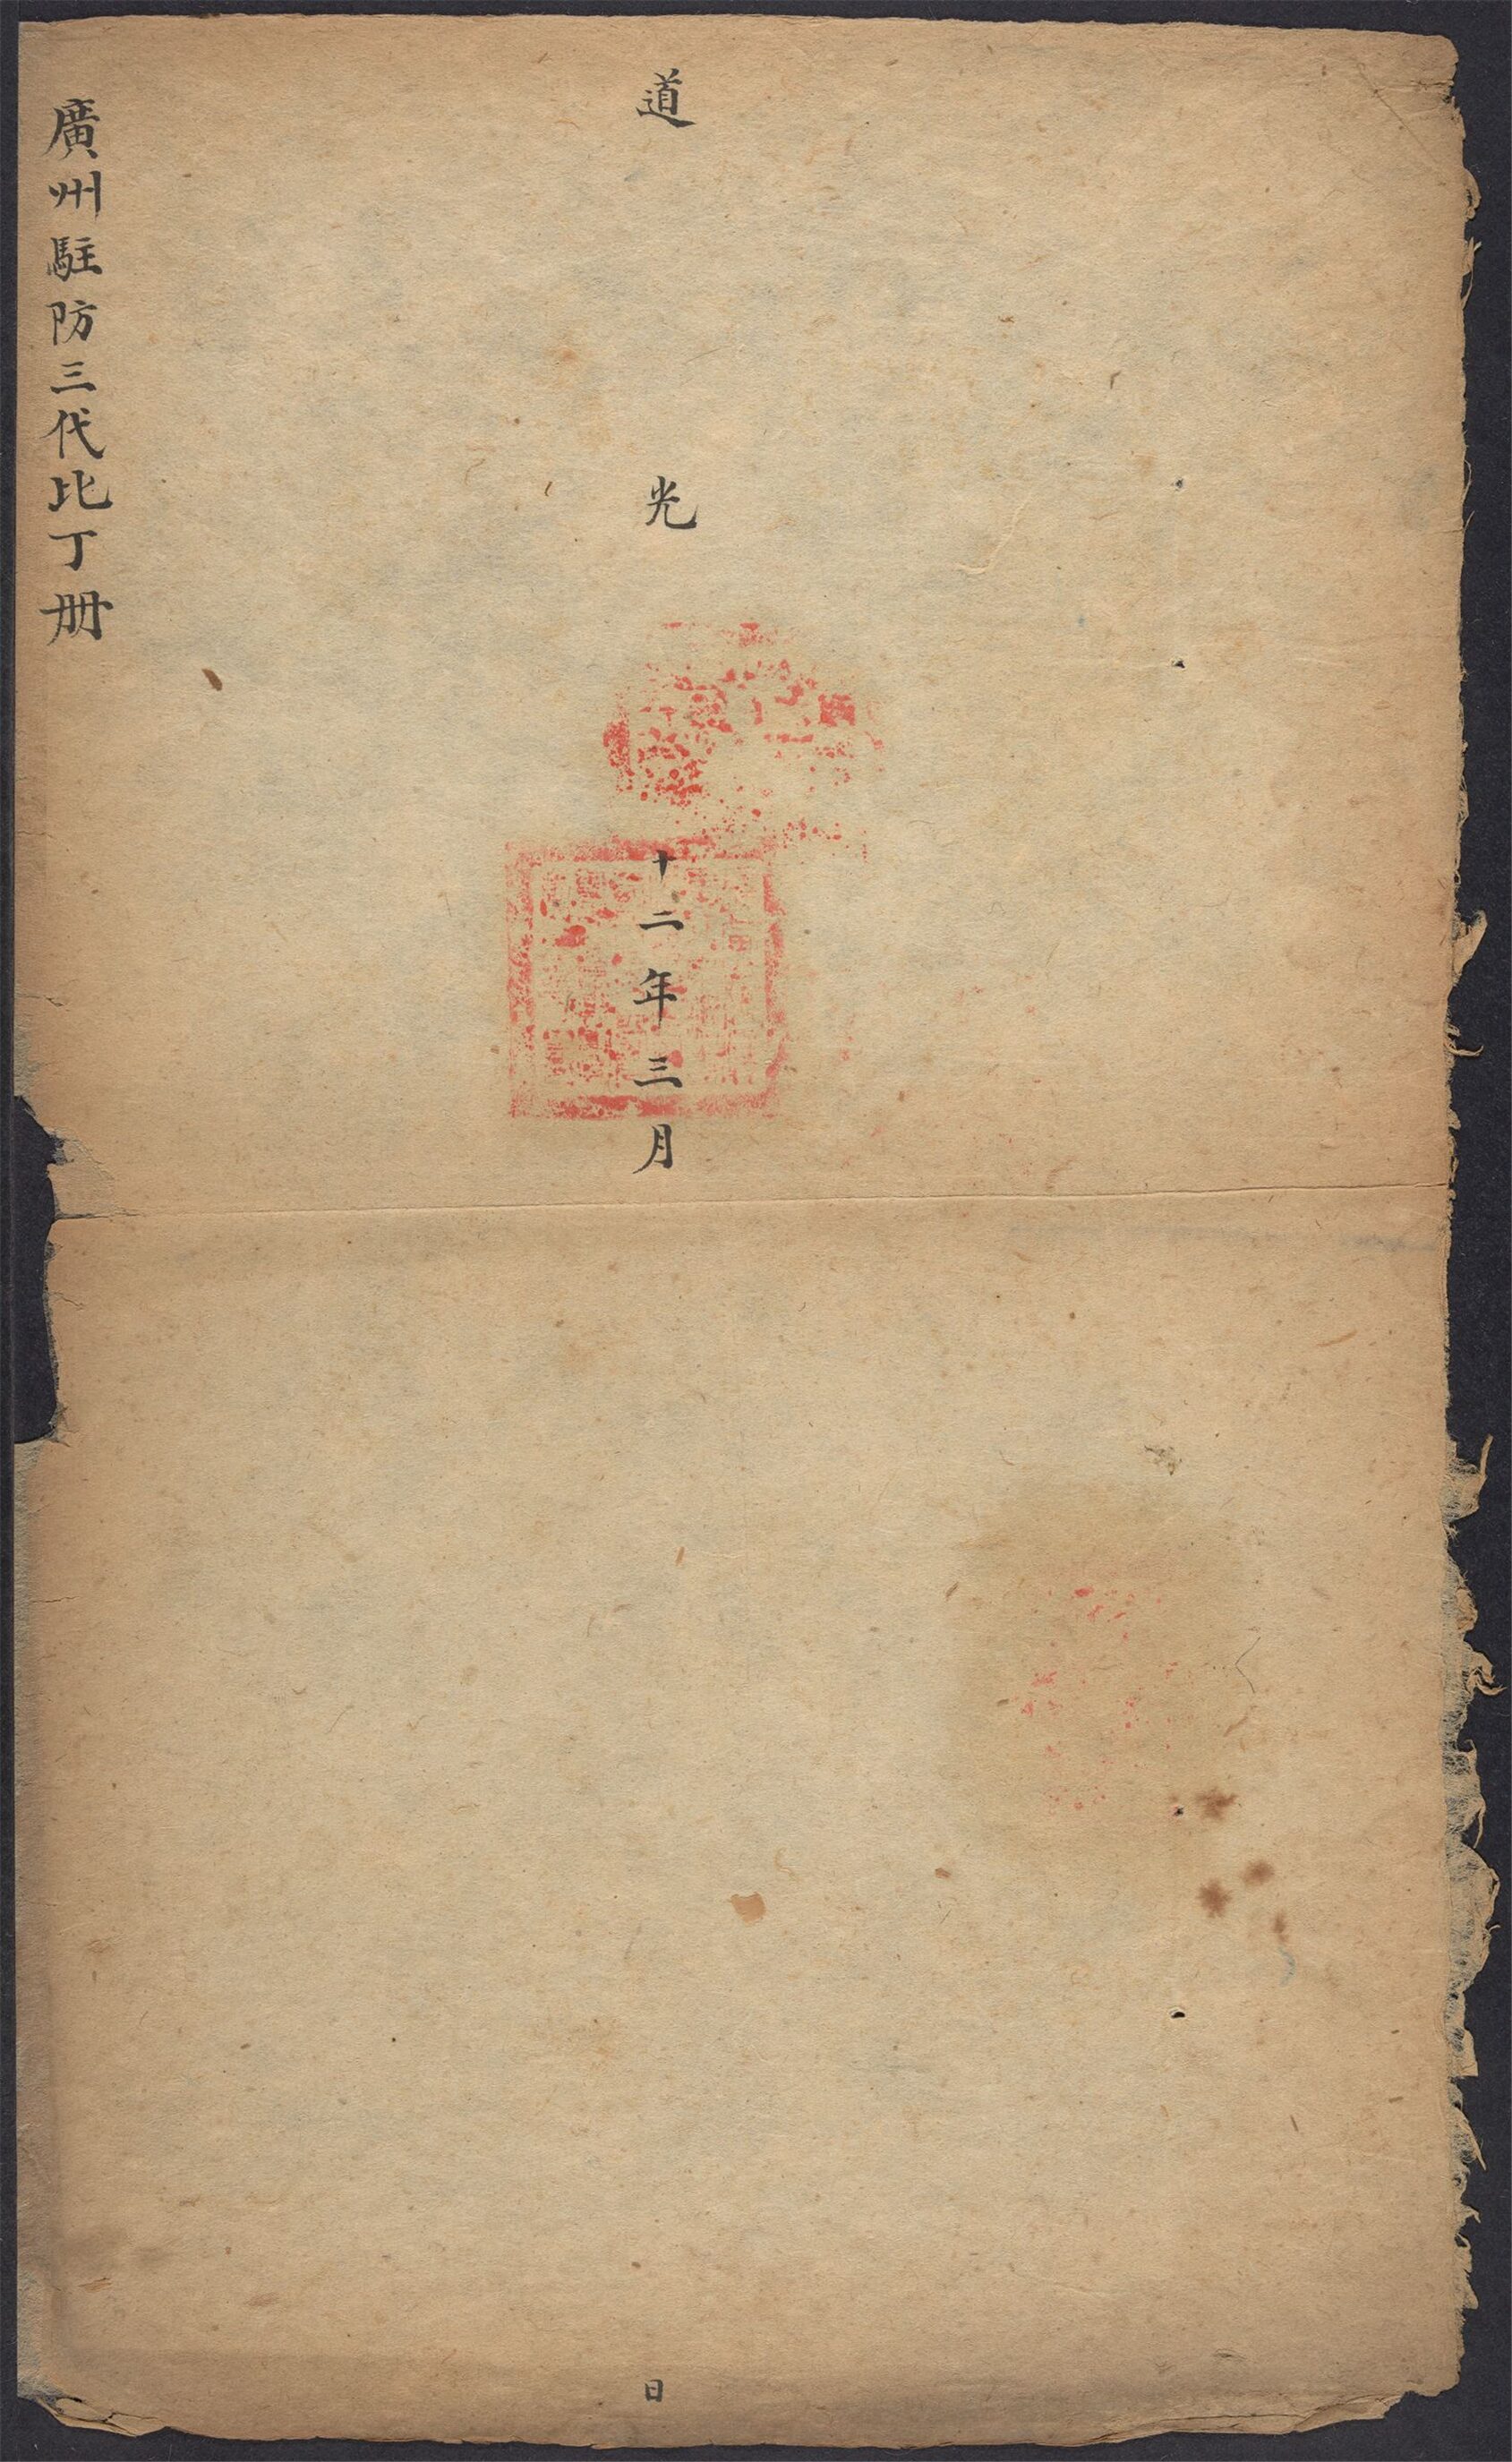 道光十二年三月日
廣州駐防三代比丁册